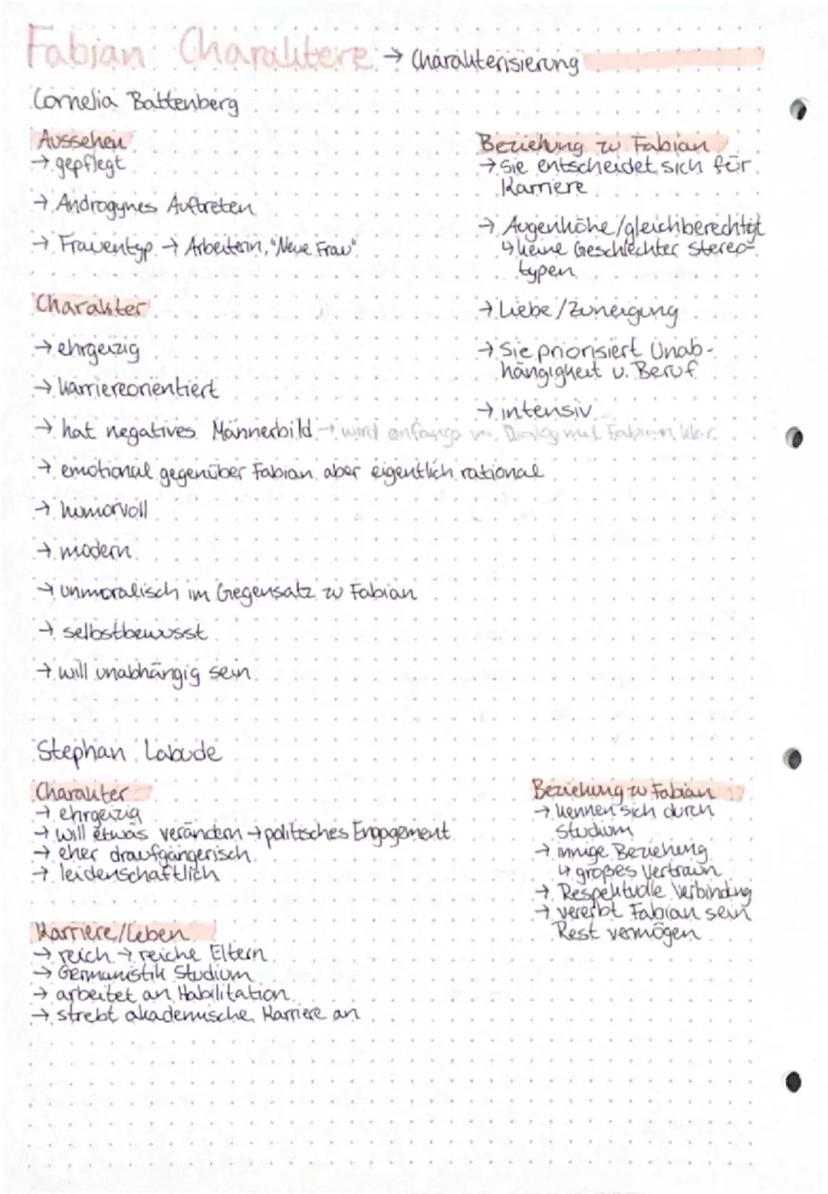 Fabian: Charaktere → Charakterisierung
Cornelia Battenberg
Aussehen
→ gepflegt
→ Androgynes Auftreten
→ Frauentyp → Arbeiterin, "Neue Frau"
Charakter
→ ehrgeizig
→ karriereorientiert
→ hat negatives Männerbild → wird anfangs im Dialog mit Fabian klar
→ emotional gegenüber Fabian aber eigentlich rational
→ humorvoll
→ modern
→ unmoralisch im Gegensatz zu Fabian
→ selbstbewusst
→ will unabhängig sein
Beziehung zu Fabian
→ Sie entscheidet sich für
Karriere
→ Augenhöhe/gleichberechtigt
↳ keine Geschlechter stereo-
typen
→ Liebe/Zuneigung
→ Sie priorisiert Unab-
hängigkeit u. Beruf
→ intensiv
Stephan Labude
Charakter
→ ehrgeizig
→ will etwas verändern → politisches Engagement
→ eher draufgängerisch
→ leidenschaftlich
Karriere/Leben
→ reich → reiche Eltern
→ Germanistik Studium
→ arbeitet an Habilitation
→ strebt akademische Karriere an
Beziehung zu Fabian
→ kennen sich durch
Studium
→ innige Beziehung
↳ großes Vertraun
→ Respektvolle Verbindung
→ vererbt Fabian sein
Rest vermögen